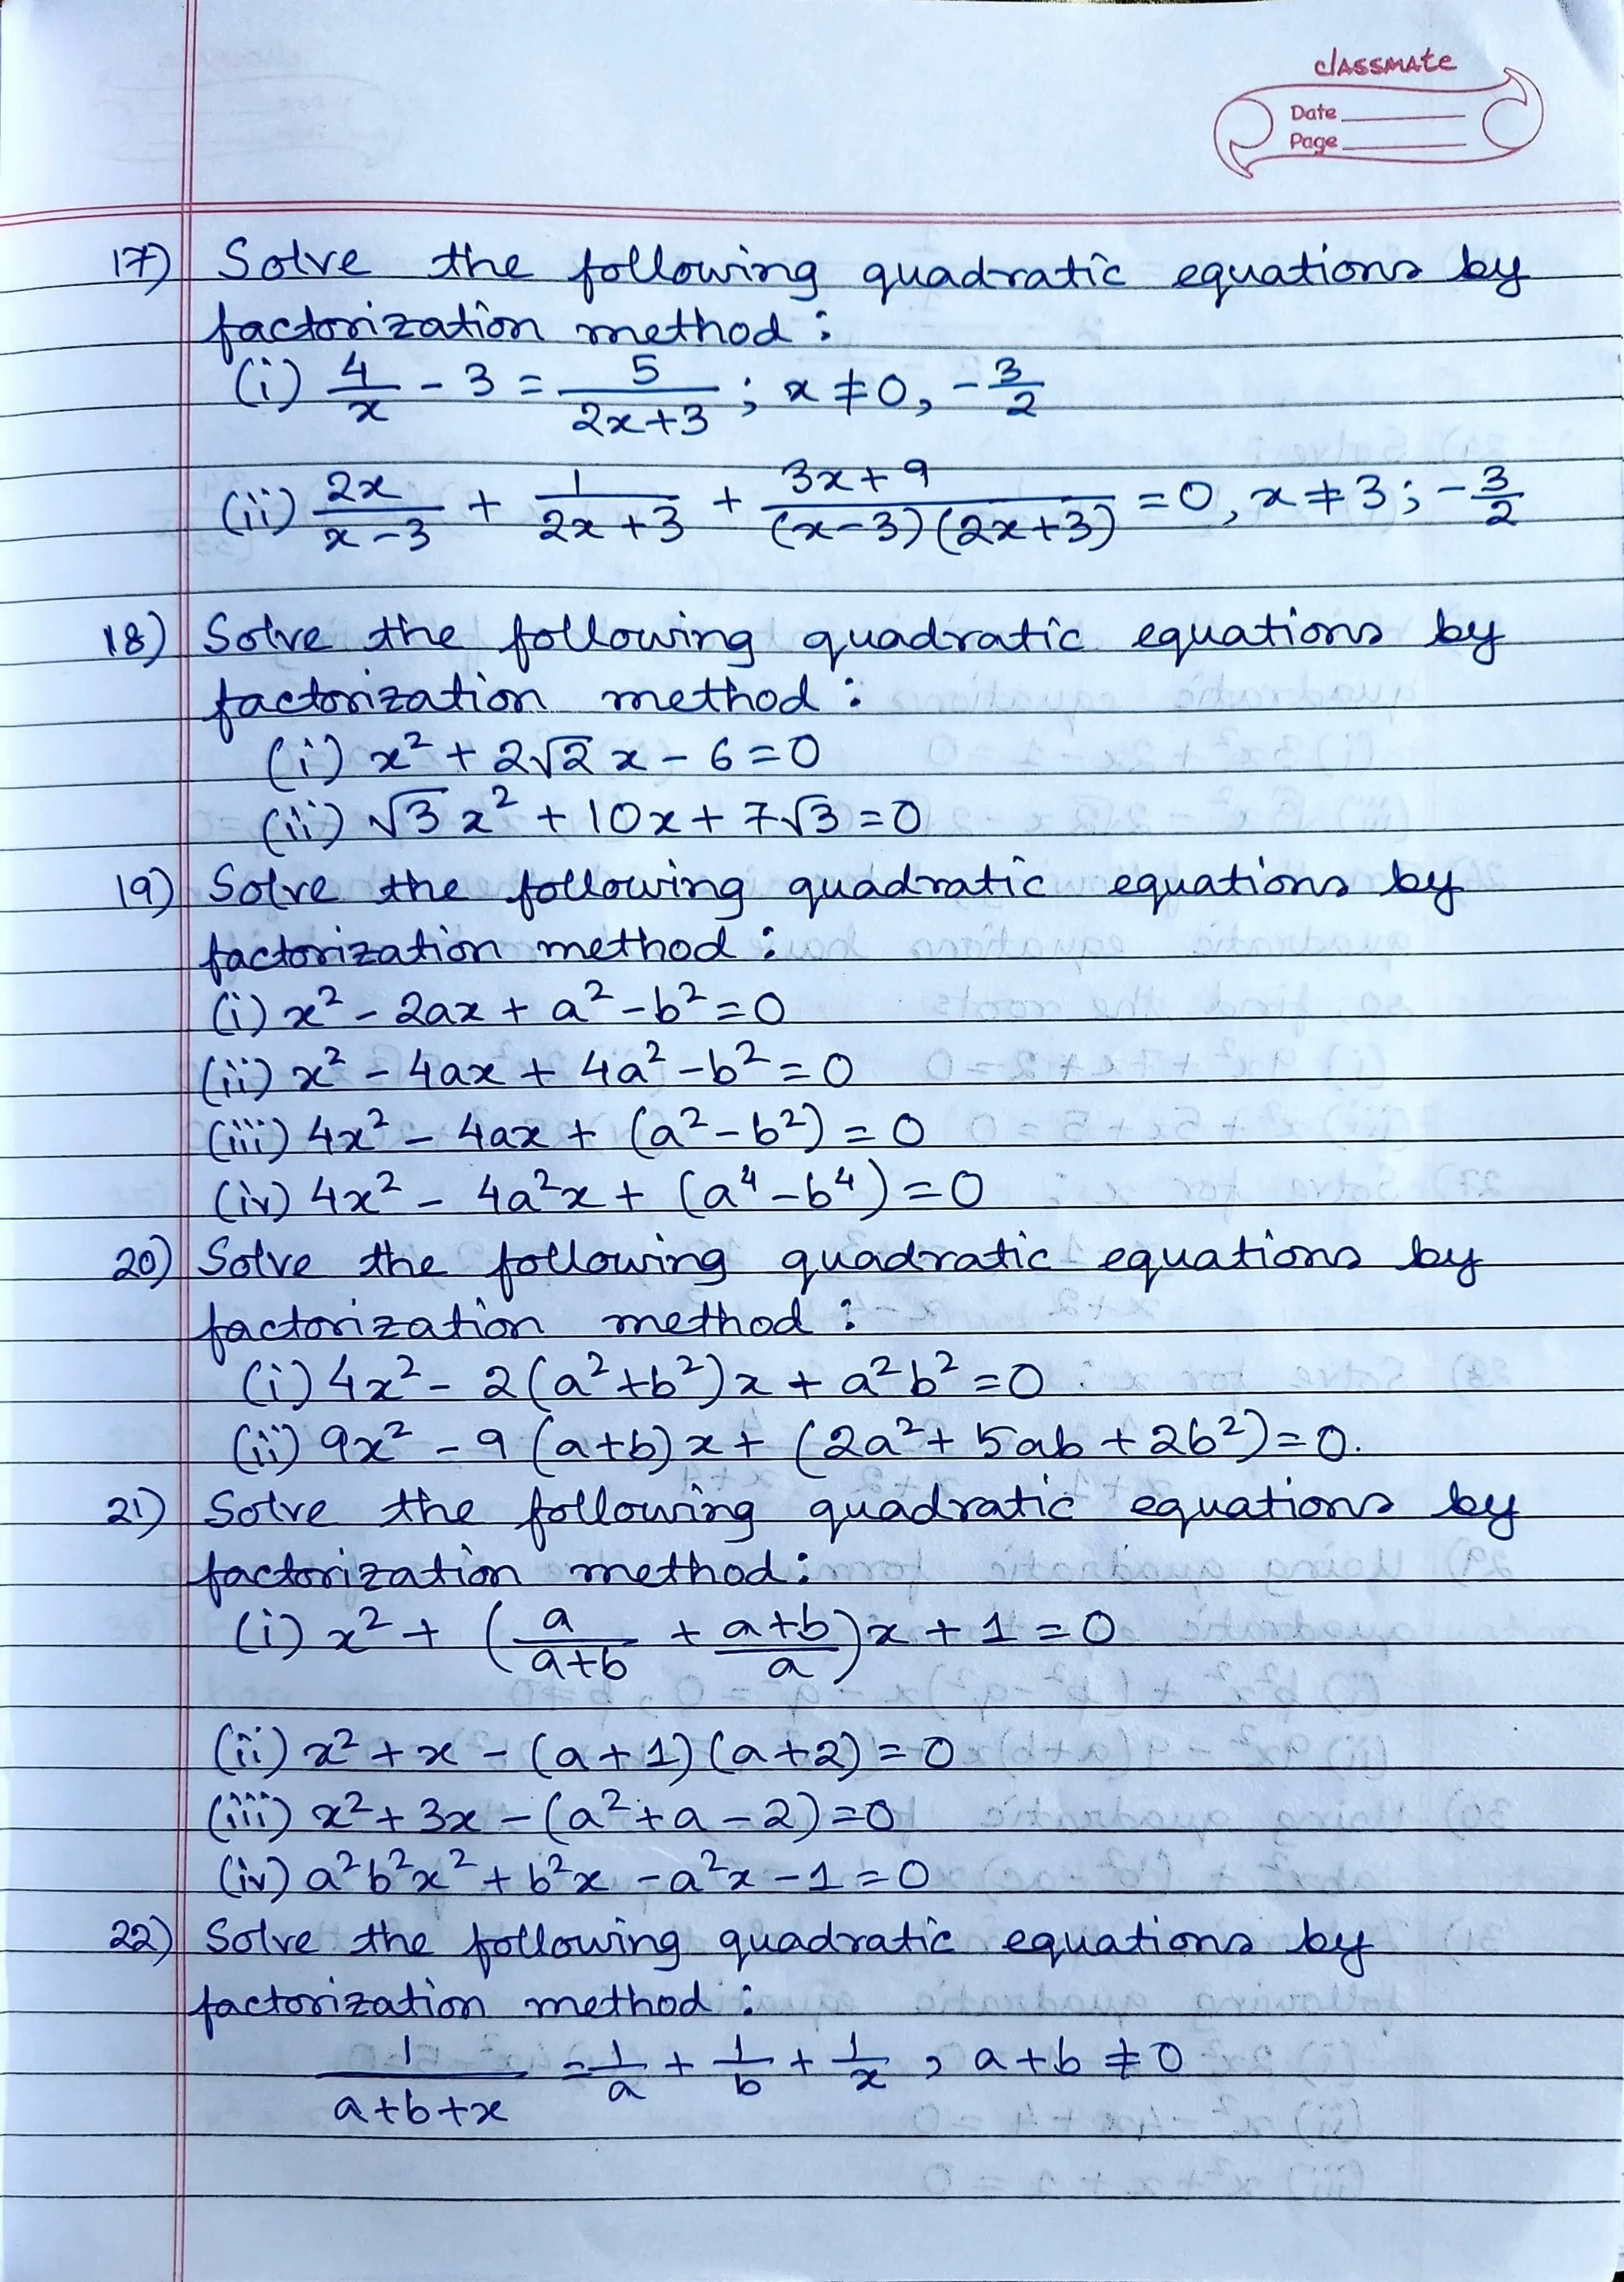 classmate
Date
Page
17) Solve the following quadratic equations by
factorization method :
(i) 4/x - 3 = 5/(2x+3) ; x ≠ 0, -3/2
(ii) 2x/(x-3) + 1/(2x+3) + (3x+9)/((x-3)(2x+3)) = 0, x ≠ 3 ; -3/2
18) Solve the following quadratic equations by
factorization method :
(i) x² + 2√2 x - 6 = 0
(ii) √3 x² + 10x + 7√3 = 0
19) Solve the following quadratic equations by
factorization method :
(i) x² - 2ax + a² - b² = 0
(ii) x² - 4ax + 4a² - b² = 0
(iii) 4x² - 4ax + (a² - b²) = 0
(iv) 4x² - 4a²x + (a⁴ - b⁴) = 0
20) Solve the following quadratic equations by
factorization method :
(i) 4x² - 2(a² + b²)x + a²b² = 0
(ii) 9x² - 9(a+b)x + (2a² + 5ab + 2b²) = 0.
21) Solve the following quadratic equations by
factorization method :
(i) x² + (a/(a+b) + (a+b)/a)x + 1 = 0
(ii) x² + x - (a+1)(a+2) = 0
(iii) x² + 3x - (a² + a - 2) = 0
(iv) a²b²x² + b²x - a²x - 1 = 0
22) Solve the following quadratic equations by
factorization method :
1/(a+b+x) = 1/a + 1/b + 1/x , a+b ≠ 0